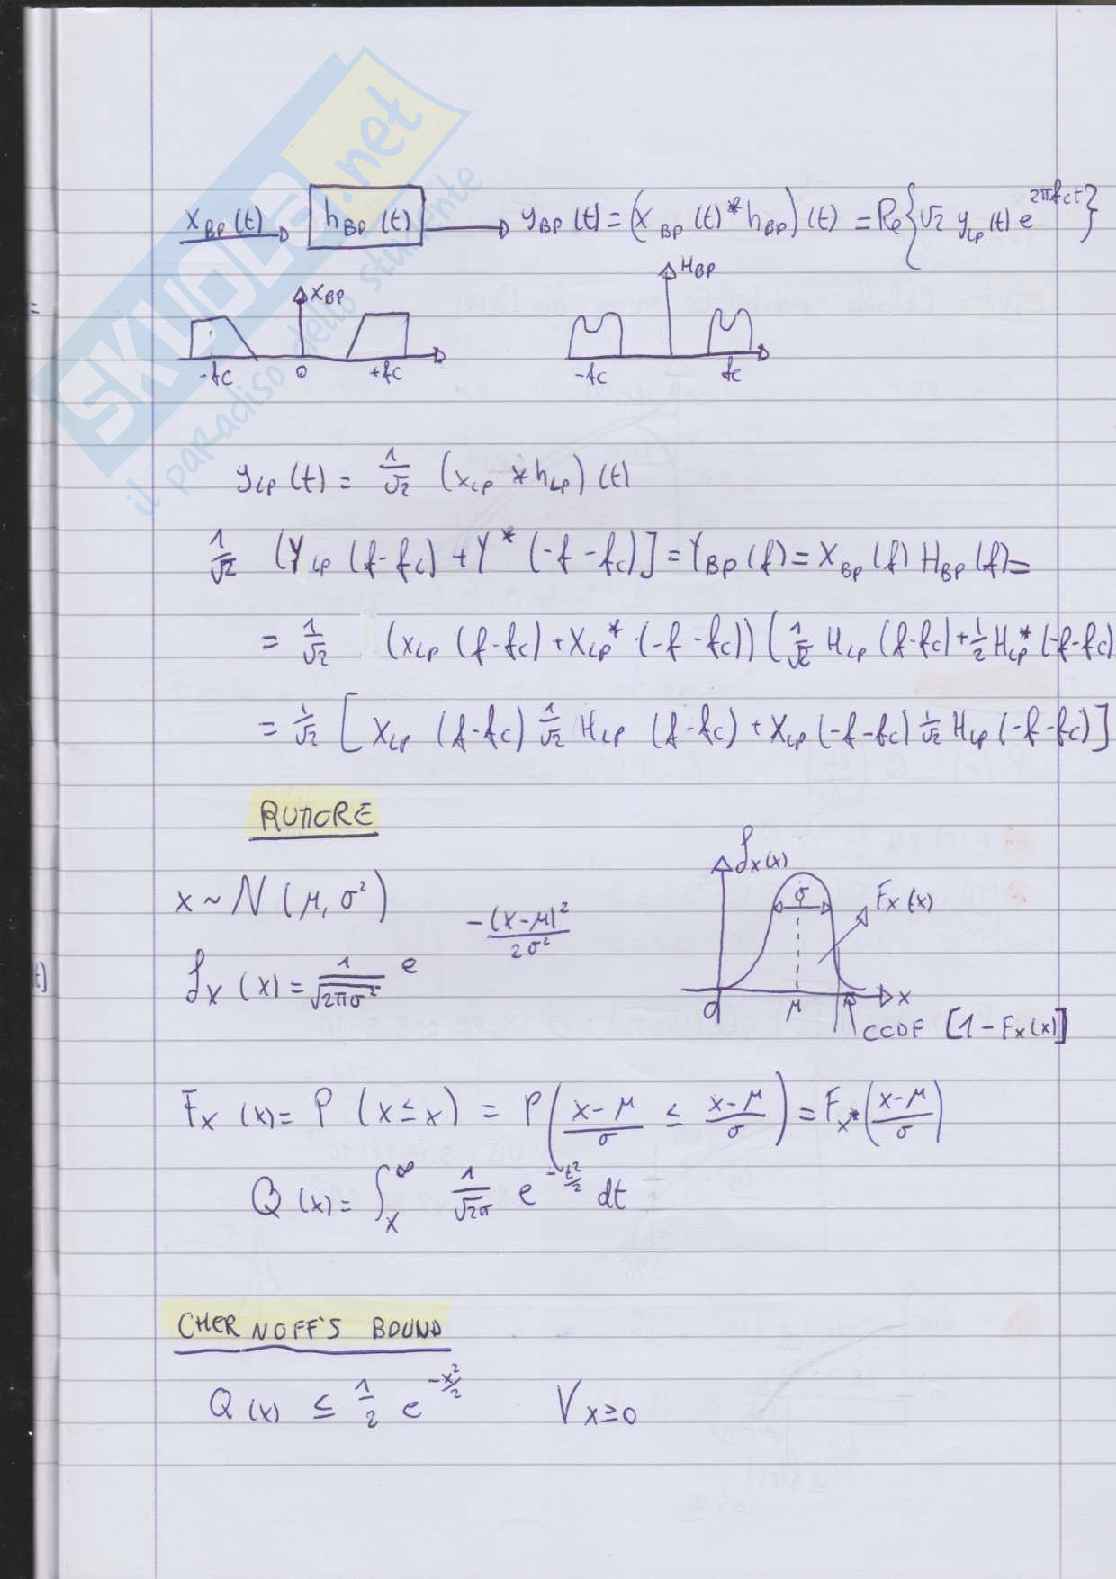 SKUOLA.net
il paradiso dello studente
x_BP (t) → h_BP (t) → y_BP (t) = (x_BP (t) * h_BP) (t) = Re{√2 y_LP (t) e^{2πfct}}
X_BP H_BP
-fc 0 +fc -fc fc
=
y_LP (t) = 1/√2 (x_LP * h_LP) (t)
1/√2 (Y_LP (f-fc) + Y* (-f-fc)] = Y_BP (f) = X_BP (f) H_BP (f) =
= 1/√2 (X_LP (f-fc) + X_LP* (-f-fc)) (1/√2 H_LP (f-fc) + 1/2 H_LP* (-f-fc)
= 1/√2 [X_LP (f-fc) 1/√2 H_LP (f-fc) + X_LP (-f-fc) 1/√2 H_LP (-f-fc)]
RUMORE
f_X (x)
x ~ N (μ, σ²)
σ F_X (x)
f_X (x) = 1/√(2πσ²) e^{-(x-μ)²/2σ²}
0 μ x
CCDF [1 - F_X (x)]
F_X (x) = P (X ≤ x) = P((x-μ)/σ ≤ (x-μ)/σ) = F_X*((x-μ)/σ)
Q (x) = ∫_x^∞ 1/√2π e^{-t²/2} dt
CHERNOFF'S BOUND
Q (x) ≤ 1/2 e^{-x²/2} ∀ x ≥ 0